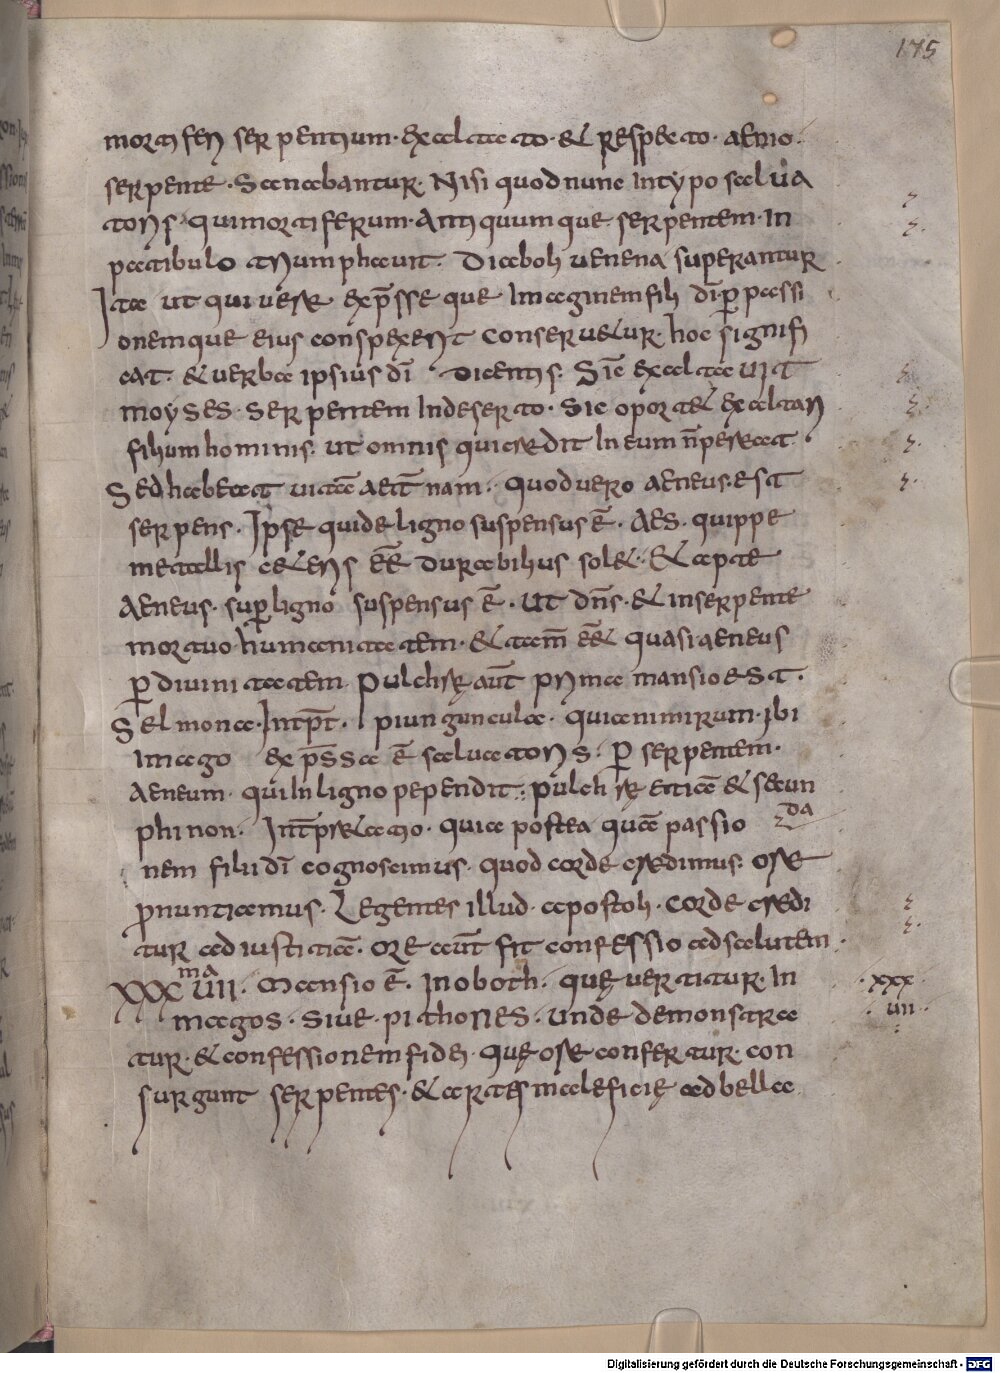 175
mortiferi serpentium· exaltato· & respecto· aeneo·
serpente· Sanabantur· Nisi quod nunc in typo salua
toris· qui mortiferum· Antiquumque· serpentem· In
patibulo triumphauit· Diaboli uenena superantur
Ita ut qui uere exp̄sseque Imaginem filii dī p̱ passi
onemque eius conspexerit conseruetur· hoc signifi
cat· & uerba ipsius dī· Dicentis· Sic̄ exaltauit
moyses· Serpentem In deserto· Sic oportet exaltari
filium hominis· ut omnis qui credit In eum n̄ pereat·
Sed habeat uitā aet̄nam· Quod uero aeneus· est
serpens· Ipse quide ligno suspensus ē· Aes· quippe
metallis ceteris eē̄ durabilius sol&· & apte
Aeneus· sup̱ ligno suspensus ē· Ut dn̄s· & in serpente
mortuo humanitatem· & tam̄ eēt quasi aeneus
p̱ diuinitatem Pulchre aut̄ prima mansio est·
Selmona· Int̄p̄t· Piunguncula· quia nimirum· Ibi
Imago exp̄ssa ē saluatoris· p̱ serpentem·
Aeneum· qui In ligno pependit·: pulchre etiā & secun
phinon· Int̄pretatio· quia postea quā passio da
nem filii dī cognoscimus· quod corde credimus· ore
pronuntiamus· Legentes illud· apostoli· Corde credi
tur ad iustitiā· ore aut̄ fit confessio ad salutem·
XXXVIIma· Mansio ē· In oboth· quę uertitur· In XXX
magos· siue· pithones· unde demonstra VII
tur· & confessionem fidei· quę ore confertur· con
surgunt serpentes· & artes maleficię ad bella
Digitalisierung gefördert durch die Deutsche Forschungsgemeinschaft - DFG